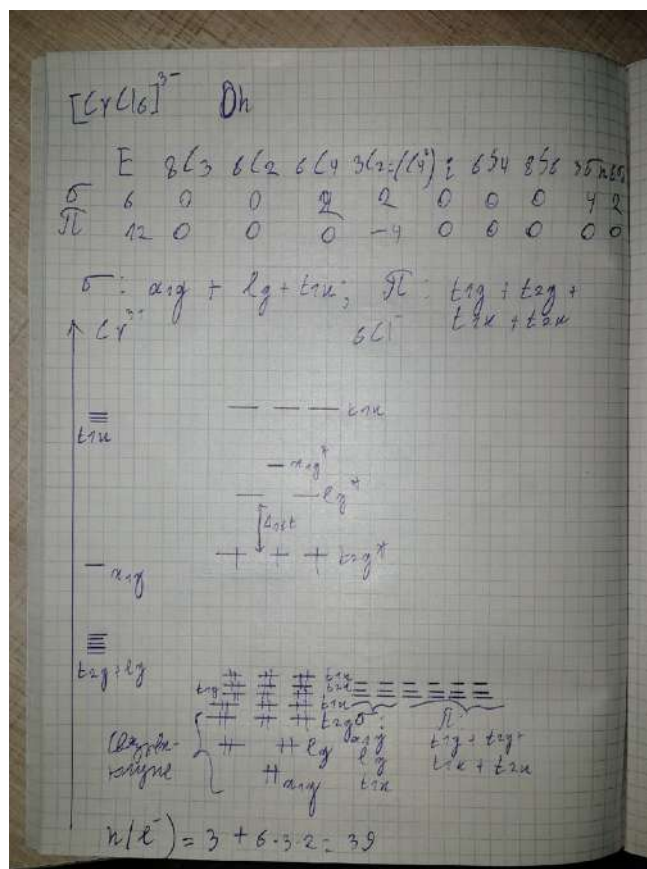 [CrCl6]3- Oh
E 8C3 6C2 6C4 3C2=(C4²) i 6S4 8S6 3σh 6σd
σ 6 0 0 2 2 0 0 0 4 2
π 12 0 0 0 -4 0 0 0 0 0
σ: a1g + eg + t1u; π: t1g + t2g +
t1u + t2u
Cr3+ 6Cl-
t1u t1u
a1g*
eg*
Δokt
t2g*
a1g
t2g+eg
t1g t1u
t2u
t1u
t2g σ: π:
eg a1g t1g + t2g +
eg t1u + t2u
a1g t1u
n(e-) = 3 + 6·3·2 = 39